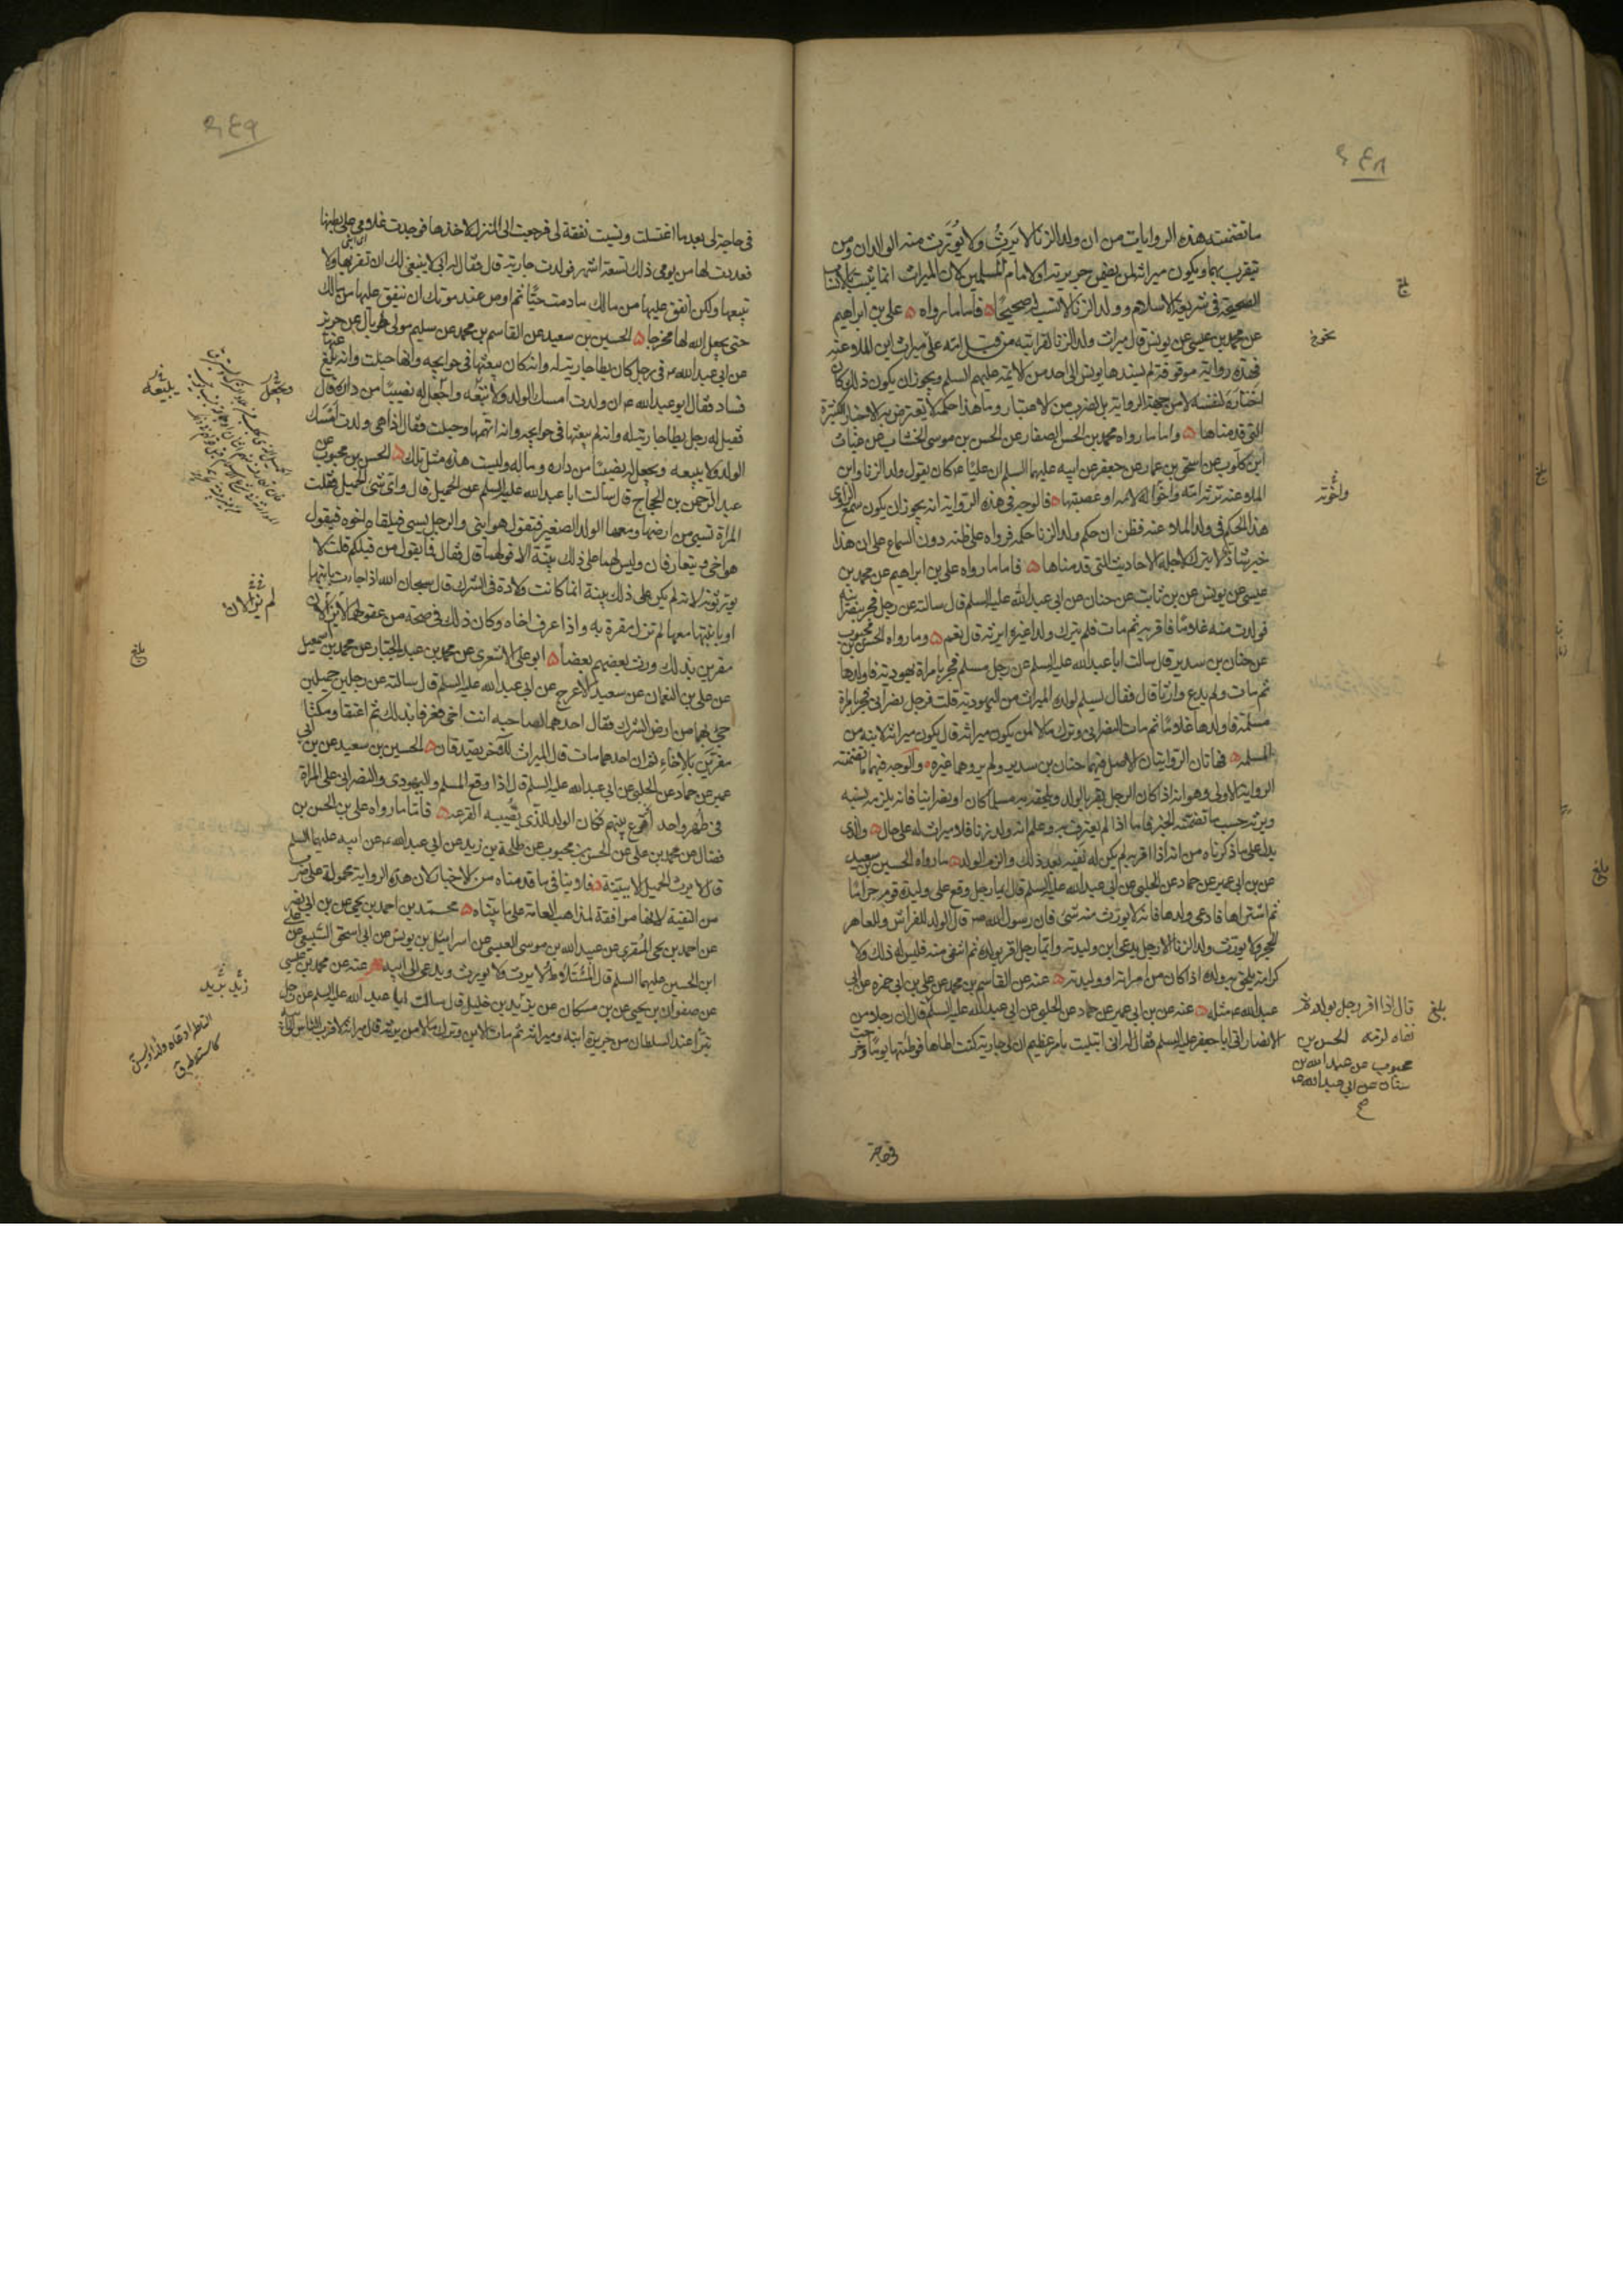 ما تضمنته هذه الروايات من ان ولد الزنا لا يرث ولا يورث منه الوالدان ومن
يتقرب بهما ويكون ميراثه لمن يضمن جريرته او لامام المسلمين لان الميراث انما يثبت بالانساب
الصحيحة في شريعة الاسلام وولد الزنا لا نسب له صحيحا فاما ما رواه علي بن ابراهيم
عن محمد بن عيسى عن يونس قال ميراث ولد الزنا لقراباته من قبل امه على ميراث ابن الملاعنه
فهذه رواية موقوفة لم يسندها يونس الى احد من الائمة عليهم السلم ويجوز ان يكون ذلك كان
اختاره لنفسه لا من جهة الرواية بل لضرب من الاعتبار وما هذا حكمه لا يعترض به الاخبار الكثيرة
التي قدمناها واما ما رواه محمد بن الحسن الصفار عن الحسن بن موسى الخشاب عن غياث
ابن كلوب عن اسحق بن عمار عن جعفر عن ابيه عليهما السلم ان عليا ع كان يقول ولد الزنا وابن
الملاعنه ترثه امه واخواله لامه او عصبتها فالوجه في هذه الرواية انه يجوز ان يكون سمع الراوي
هذا الحكم في ولد الملاعنه فظن ان حكم ولد الزنا حكمه فرواه على ظنه دون السماع على ان هذا
خبر شاذ لا يترك لاجله الاحاديث التي قدمناها فاما ما رواه علي بن ابراهيم عن محمد بن
عيسى عن يونس عن بن ثابت عن حنان عن ابي عبد الله عليه السلم قال سالته عن رجل فجر بنصرانية
فولدت منه غلاما فاقر به ثم مات فلم يترك ولدا غيره ايرثه قال نعم وما رواه الحسن بن محبوب
عن حنان بن سدير قال سالت ابا عبد الله عليه السلم عن رجل مسلم فجر بامراة يهودية فاولدها
ثم مات ولم يدع وارثا قال فقال يسلم لولده الميراث من اليهودية قلت فرجل نصراني فجر بامراة
مسلمة فاولدها غلاما ثم مات النصراني وترك مالا لمن يكون ميراثه قال يكون ميراثه لابنه من
المسلمه فهاتان الروايتان الاصل فيهما حنان بن سدير ولم يروهما غيره والوجه فيهما ما تضمنته
الرواية الاولى وهو انه اذا كان الرجل اقر بالولد ويلحقه به مسلما كان او نصرانيا فانه يلزمه نسبه
ويرثه حسب ما تضمنه الخبر فاما اذا لم يعترف به وعلم انه ولد زنا فلا ميراث له على حال والذي
يدل على ما ذكرناه من انه اذا اقر به لم يكن له نفيه بعد ذلك والزم الولد ما رواه الحسين بن سعيد
عن بن ابي عمير عن حماد عن الحلبي عن ابي عبد الله عليه السلم قال ايما رجل وقع على وليدة قوم حراما
ثم اشتراها فادعى ولدها فانه لا يورث منه شئ فان رسول الله ص قال الولد للفراش وللعاهر
الحجر ولا يورث ولد الزنا الا رجل يدعي ابن وليدته وايما رجل اقر بولده ثم انتفى منه فليس له ذلك ولا
كرامة يلحق به ولده اذا كان من امراته او وليدته عنه عن القاسم بن محمد عن علي بن ابي حمزه عن ابي
عبد الله ع مثله عنه عن بن ابي عمير عن حماد عن الحلبي عن ابي عبد الله عليه السلم قال ان رجلا من
الانصار اتى ابا جعفر عليه السلم فقال له اني ابتليت بامر عظيم ان لي جارية كنت اطاها فوطئتها يوما وخرجت
بلغ قال اذا اقر رجل بولد ثم
نفاه لزمه الحسن بن
محبوب عن عبد الله بن
سنان عن ابي عبد الله ع
صح
في حاجة
في حاجة لي بعد ما اغتسلت ونسيت نفقة لي فرجعت الى المنزل لاخذها فوجدت غلامي على بطنها
فعددت لها من يومي ذلك تسعة اشهر فولدت جارية قال فقال له ابي لا ينبغي لك ان تقربها ولا
تبيعها ولكن انفق عليها من مالك ما دمت حيا ثم اوص عند موتك ان ينفق عليها من مالك
حتى يجعل الله لها مخرجا الحسين بن سعيد عن القاسم بن محمد عن سليم مولى طربال عن حريز
عن ابي عبد الله ع في رجل كان يطا جارية له وانه كان يبعثها في حوايجه وانها حبلت وانه بلغه عنها
فساد فقال ابو عبد الله ع ان ولدت امسك الولد ولا تبعه واجعل له نصيبا من داره قال
فقيل له رجل يطا جارية له وانه لم يبعثها في حوايجه وانه اتهمها وحبلت فقال اذا هي ولدت امسك
الولد ولا يبيعه ويجعل له نصيبا من داره وماله وليست هذه مثل تلك الحسن بن محبوب عن
عبد الرحمن بن الحجاج قال سالت ابا عبد الله عليه السلم عن الحميل قال واي شئ الحميل فقلت
المراة تسبى من ارضها ومعها الولد الصغير فتقول هو ابني والرجل يسبى فيلقاه اخوه فيقول
هو اخي ويتعارفان وليس لهما على ذلك بينة الا قولهما قال فقال فما يقول من قبلكم قلت لا
يورثونه لانه لم يكن على ذلك بينة انما كانت ولادة في الشرك قال سبحان الله اذا جاءت بابنها
او بابنتها معها لم تزل مقرة به واذا عرف اخاه وكان ذلك في صحة من عقولهما لا يزالان
مقرين بذلك ورث بعضهم بعضا ابو علي الاشعري عن محمد بن عبد الجبار عن محمد بن اسمعيل
عن علي بن النعمان عن سعيد الاعرج عن ابي عبد الله عليه السلم قال سالته عن رجلين حميلين
جئ بهما من ارض الشرك فقال احدهما لصاحبه انت اخي فعرفا بذلك ثم اعتقا ومكثا
مقرين بالاخاء ثم ان احدهما مات قال الميراث للاخر يصدقان الحسين بن سعيد عن بن ابي
عمير عن حماد عن الحلبي عن ابي عبد الله عليه السلم قال اذا وقع المسلم واليهودي والنصراني على المراة
في طهر واحد اقرع بينهم فكان الولد للذي يصيبه القرعه فاما ما رواه علي بن الحسن بن
فضال عن محمد بن علي عن الحسن بن محبوب عن طلحة بن زيد عن ابي عبد الله ع عن ابيه عليهما السلم
قال لا يرث الحميل الا ببينة فلا ينافي ما قدمناه من الاخبار لان هذه الرواية محمولة على ضرب
من التقية لانها موافقة لمذاهب العامة على ما بيناه محمد بن احمد بن يحيى عن بن ابي نصر
عن احمد بن يحيى المقري عن عبيد الله بن موسى العبسي عن اسرائيل بن يونس عن ابي اسحق السبيعي عن علي
ابن الحسين عليهما السلم قال المستلاط لا يرث ولا يورث ويدعى الى ابيه عنه عن محمد بن عيسى
عن صفوان بن يحيى عن بن مسكان عن يزيد بن خليل قال سالت ابا عبد الله عليه السلم عن رجل
تبرا عند السلطان من جريرة ابنه وميراثه ثم مات الابن وترك مالا من يرثه قال ميراثه لاقرب الناس الى ابيه
ويجعل
يبيعه
لم يزالان
بلغ